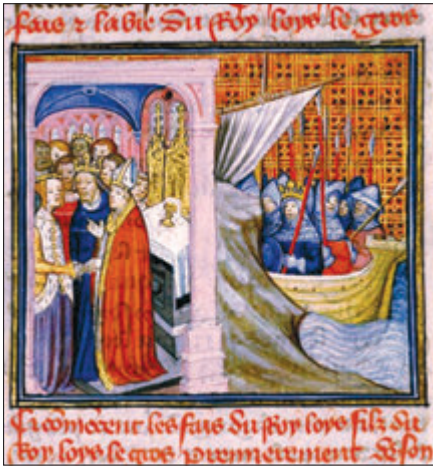 fais & la vie du Roy loys le gros
Ci cōmencent les fais du Roy loys filz du
Roy loys le gros premierement de son